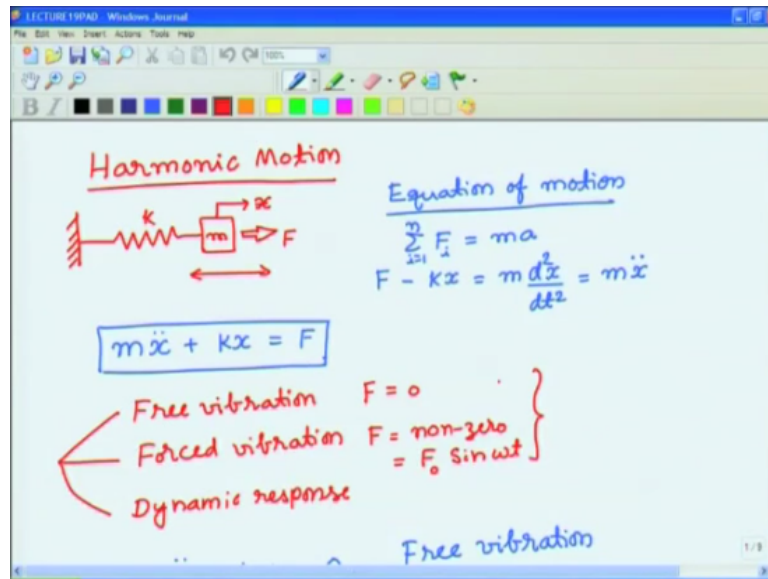 LECTURE19PAD - Windows Journal
File Edit View Insert Actions Tools Help
100%
B I
Harmonic Motion
K
m
x
F
Equation of motion
n
∑ F_i = ma
i=1
F - Kx = m d²x/dt² = mẍ
mẍ + Kx = F
Free vibration F = 0
Forced vibration F = non-zero
= F₀ Sin ωt
Dynamic response
Free vibration
1/9